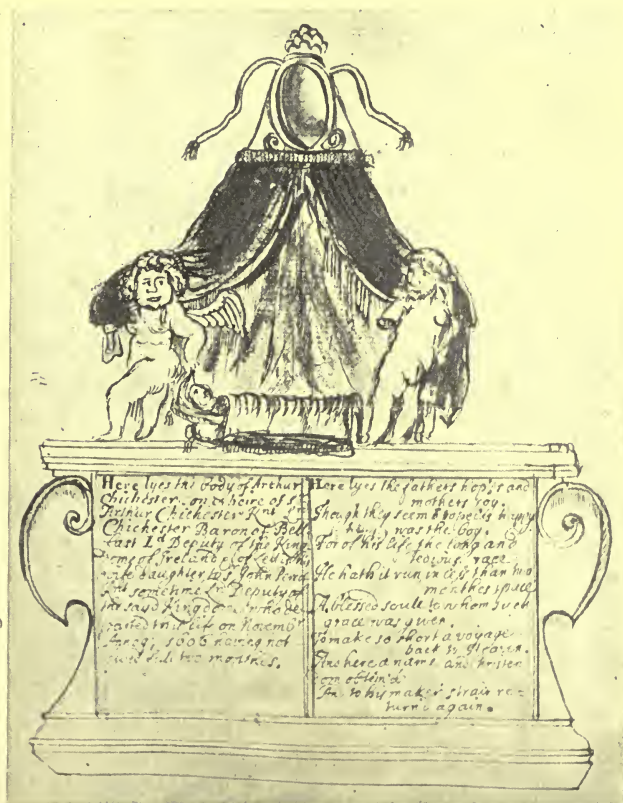 Here lyes the body of Arthur
Chichester, son & heire of Sr
Arthur Chichester Knt Ld
Chichester Baron of Bel
fast Ld Deputy of the King
dome of Ireland & of
wife daughter to Sr John
Knt sometime Ld Deputy of
the sayd Kingdom who de
parted this life on Novembr
1606 haveing not
two monthes.
Here lyes the fathers hopes and
mothers Joy,
Though they seem happy
was the boy.
For of his life the long and
tedious race
He hath it run in less than two
monthes space
A blessed soule to whom such
grace was given,
To make so short a voyage
back to Heaven.
And here a name and
obtein'd
And to his maker strait re=
turn'd again.